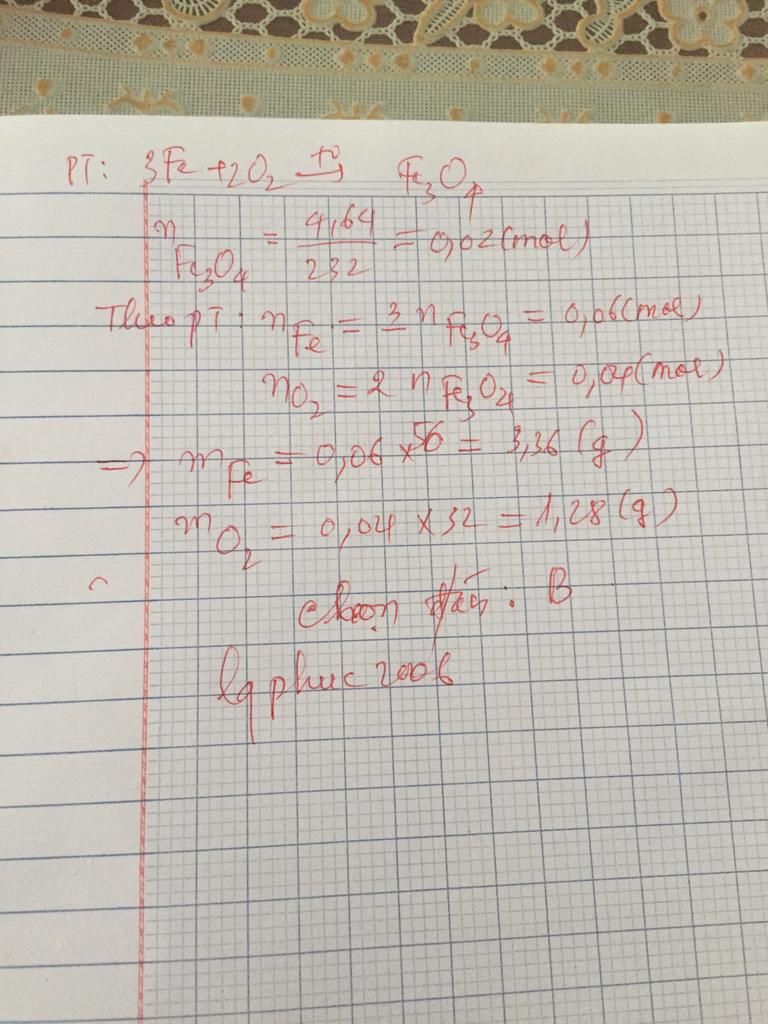 PT: 3Fe + 2O₂ →(t°) Fe₃O₄
n Fe₃O₄ = 4,64 / 232 = 0,02 (mol)
Theo pT: n Fe = 3 n Fe₃O₄ = 0,06 (mol)
n O₂ = 2 n Fe₃O₄ = 0,04 (mol)
=> m Fe = 0,06 × 56 = 3,36 (g)
m O₂ = 0,04 × 32 = 1,28 (g)
chọn : B
lq phuc 2006